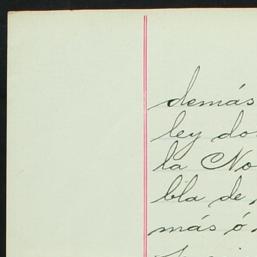 demás
ley do
la No
bla de
más ó